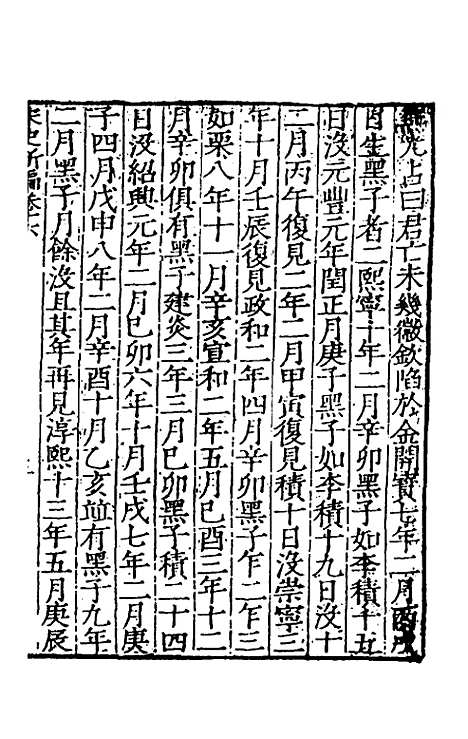 無光占曰君亡未幾徽欽陷於金開寶七年二月丙戌
日生黑子者二熙寧十年二月辛卯黑子如李積十五
日沒元豐元年閏正月庚子黑子如李積十九日沒十
二月丙午復見二年二月甲寅復見積十日沒崇寧三
年十月壬辰復見政和二年四月辛卯黑子乍二乍三
如栗八年十一月辛亥宣和二年五月己酉三年十二
月辛卯俱有黑子建炎三年三月己卯黑子積二十四
日沒紹興元年二月己卯六年十月壬戌七年二月庚
子四月戊申八年二月辛酉十月乙亥並有黑子九年
二月黑子月餘沒且其年再見淳熙十三年五月庚辰
宋史新編卷十六